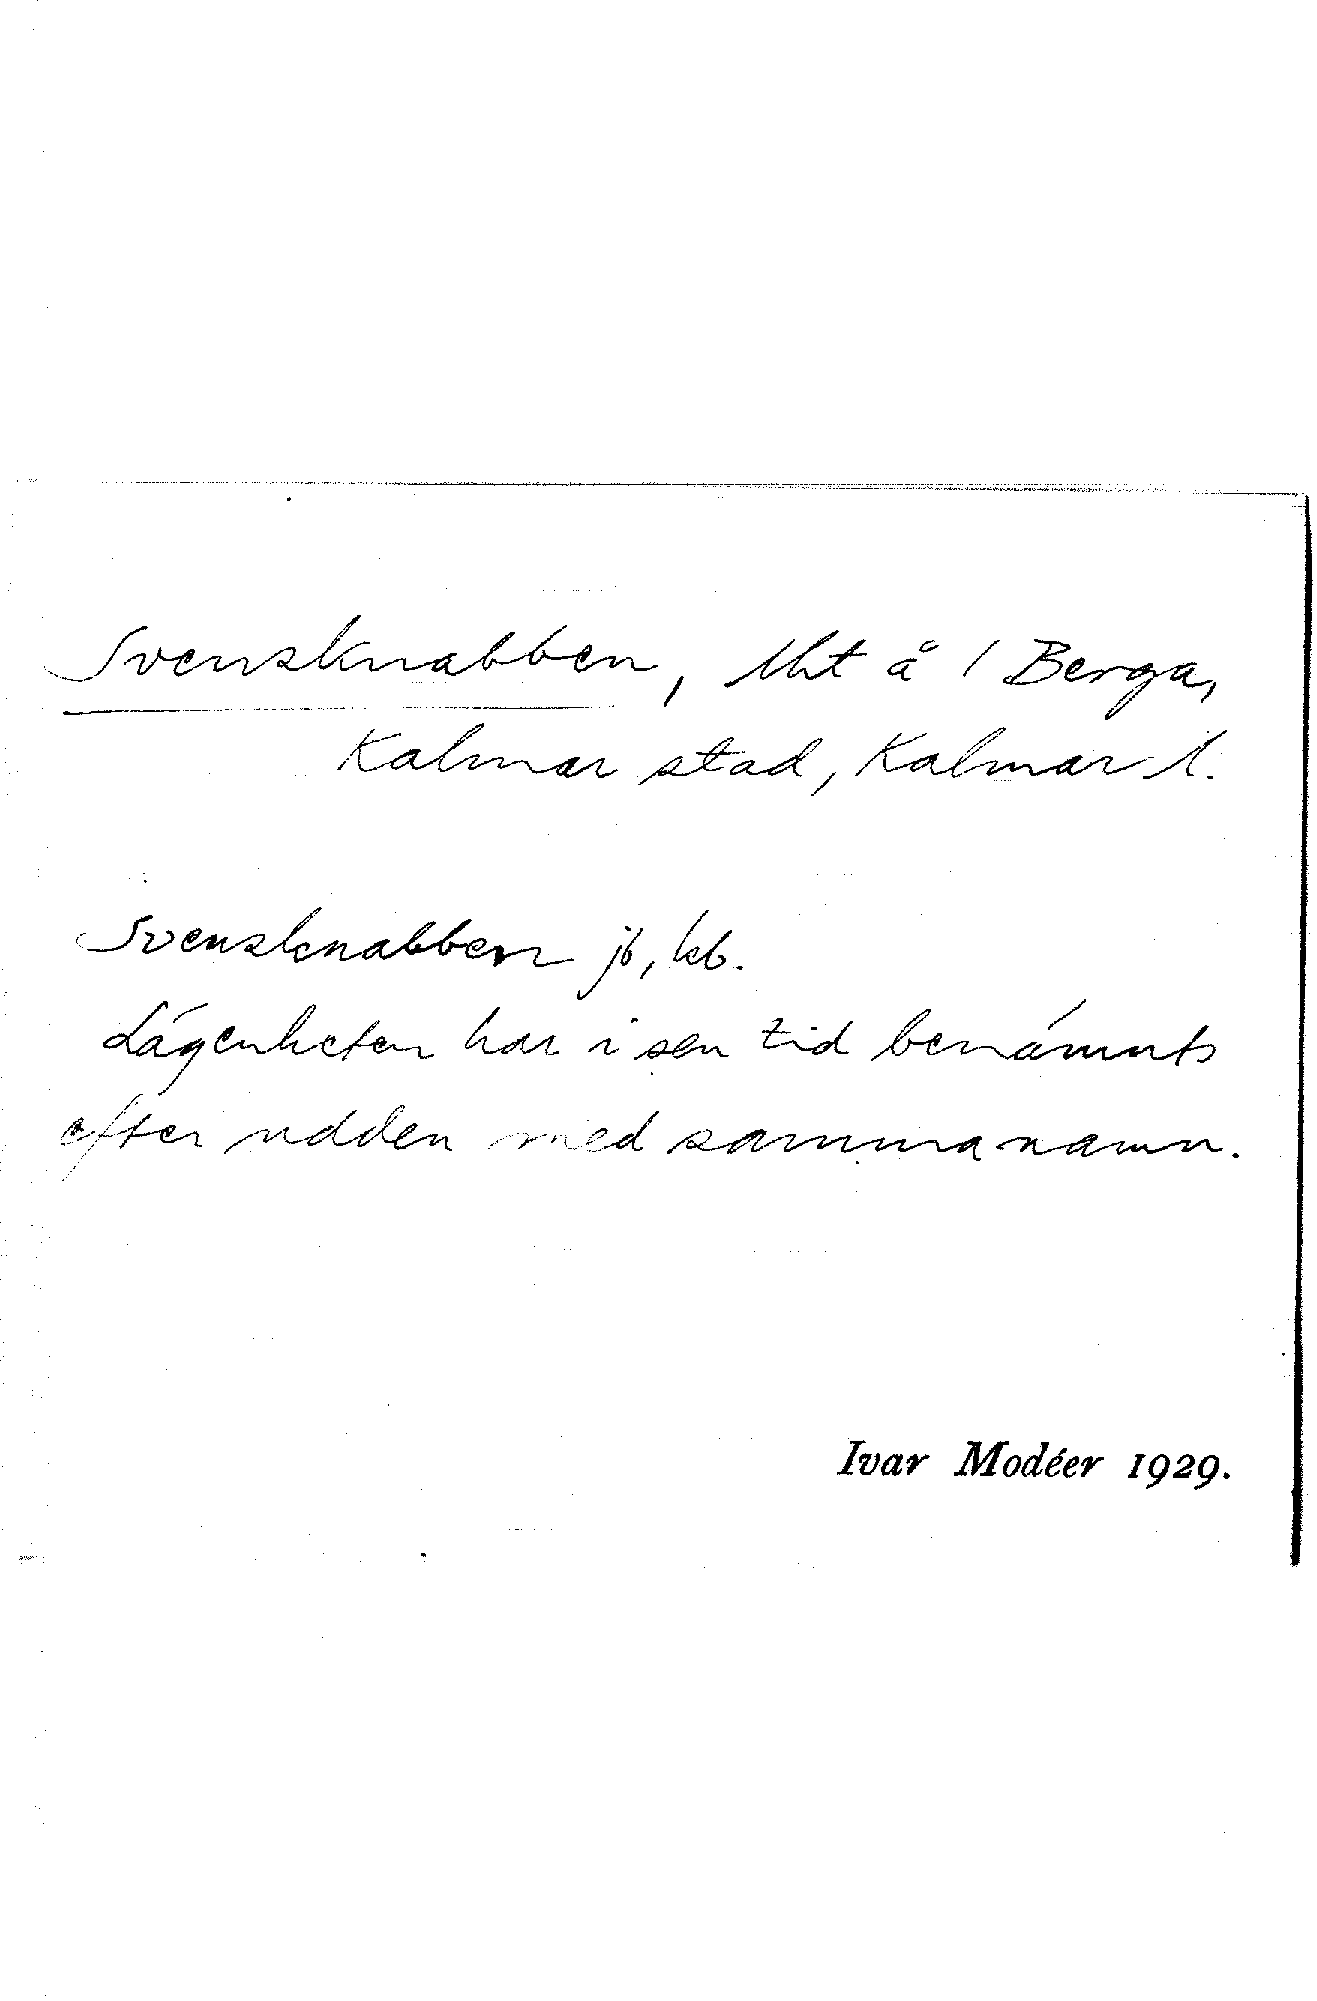 Svensknabben, lht å 1 Berga,
Kalmar stad, Kalmar l.
Svensknabben jb, kb.
Lägenheten har i sen tid benämnts
efter udden med samma namn.
Ivar Modéer 1929.